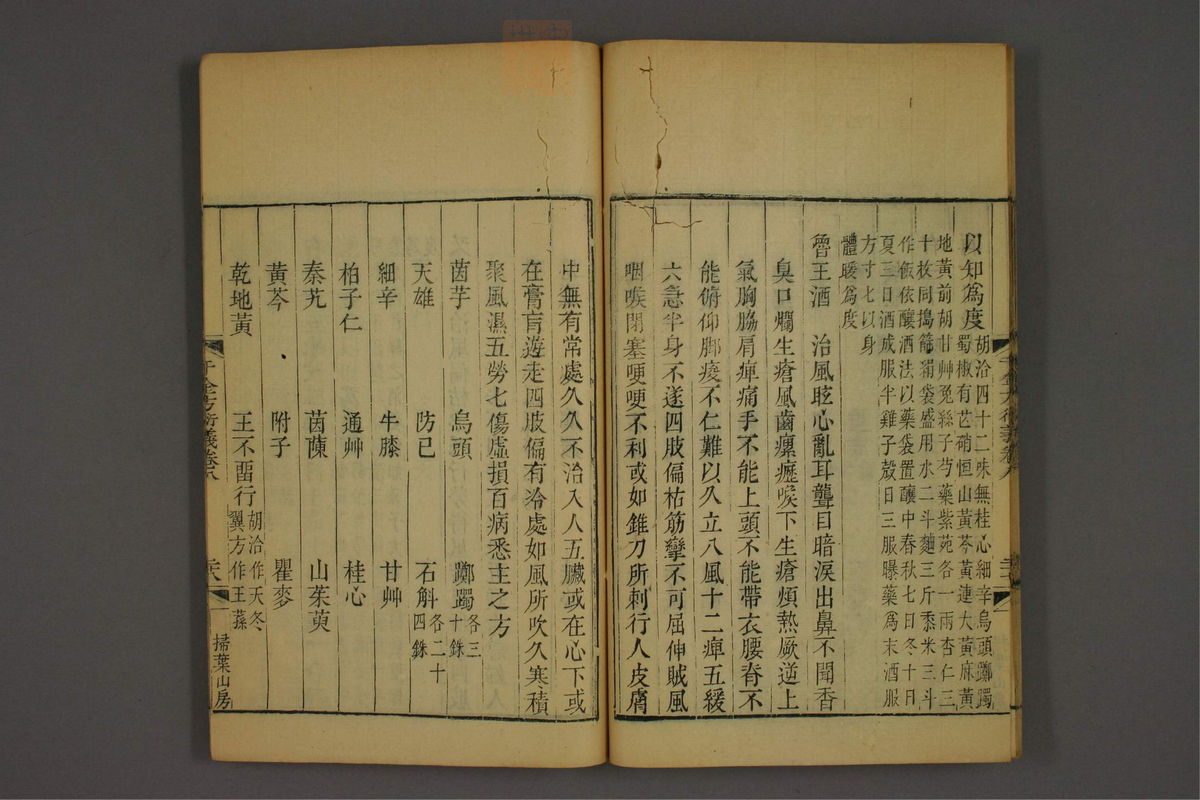 以知爲度胡洽四十二味無桂心細辛烏頭躑躅
蜀椒有芒硝恒山黃芩黃連大黃麻黃
地黃前胡甘艸兔絲子芍藥紫菀各一兩杏仁三
十枚同搗篩蒻袋盛用水二斗麯三斤黍米三斗
作飯依釀酒法以藥袋置釀中春秋七日冬十日
夏三日酒成服半雞子殼日三服曝藥爲末酒服
方寸七以身
體暖爲度
魯王酒 治風眩心亂耳聾目暗淚出鼻不聞香
臭口爛生瘡風齒瘰癧喉下生瘡煩熱厥逆上
氣胸脇肩痺痛手不能上頭不能帶衣腰脊不
能俯仰脚痠不仁難以久立八風十二痺五緩
六急半身不遂四肢偏枯筋攣不可屈伸賊風
咽喉閉塞哽哽不利或如錐刀所刺行人皮膚
中無有常處久久不治入人五臟或在心下或
在膏肓遊走四肢偏有冷處如風所吹久寒積
聚風濕五勞七傷虛損百病悉主之方
茵芋 烏頭 躑躅各三十銖
天雄 防已 石斛各二十四銖
細辛 牛膝 甘艸
柏子仁 通艸 桂心
秦艽 茵蔯 山茱萸
黃芩 附子 瞿麥
乾地黃 王不留行胡洽作天冬翼方作王蓀
千金方衍義卷八
掃葉山房